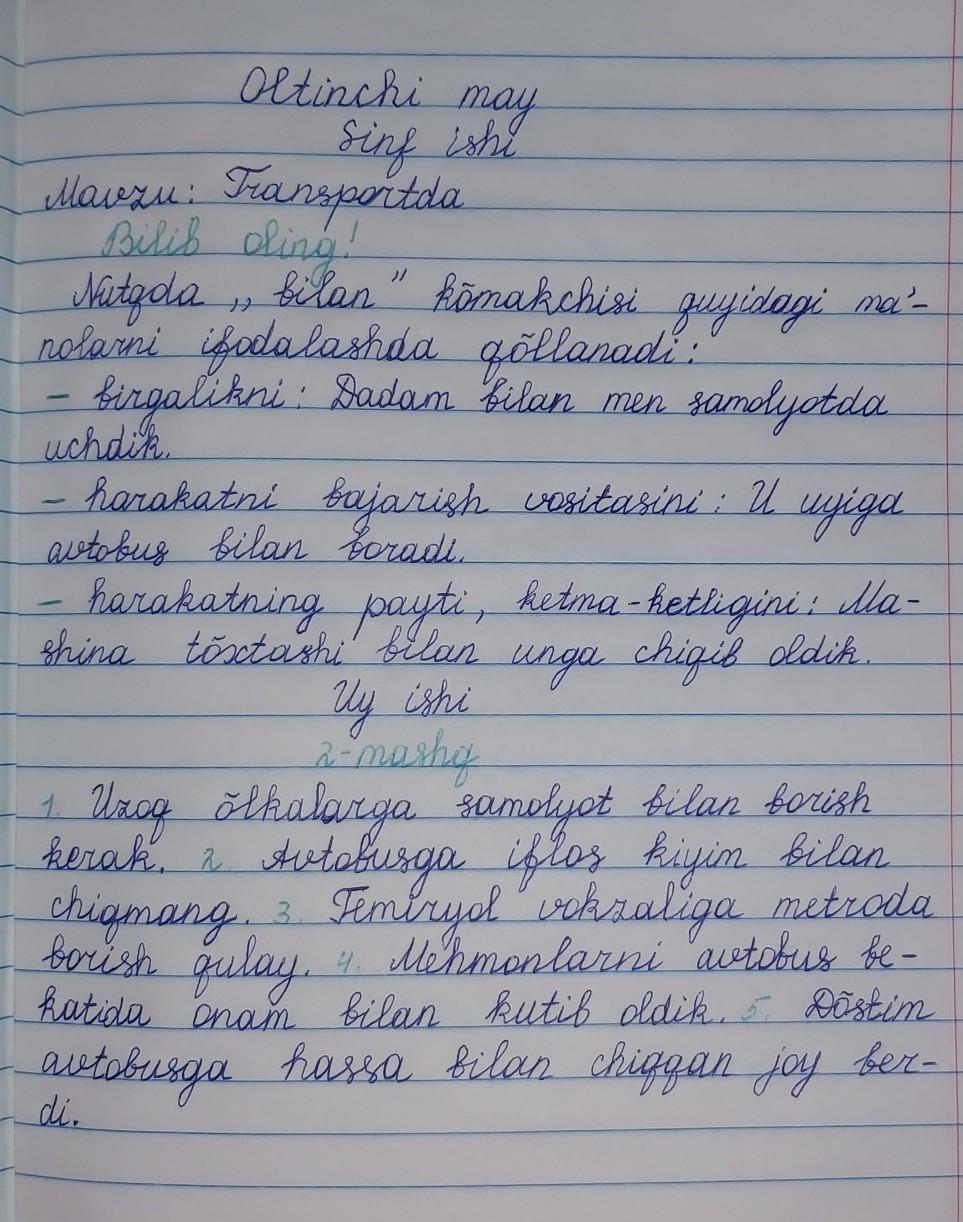 Oltinchi may
Sinf ishi
Mavzu: Transportda
Bilib oling!
Nutqda „bilan” kõmakchisi quyidagi ma’-
nolarni ifodalashda qõllanadi:
- birgalikni: Dadam bilan men samolyotda
uchdik.
- harakatni bajarish vositasini: U uyiga
avtobus bilan boradi.
- harakatning payti, ketma-ketligini: Ma-
shina tõxtashi bilan unga chiqib oldik.
Uy ishi
2-mashq
1. Uzoq õlkalarga samolyot bilan borish
kerak. 2. Avtobusga iflos kiyim bilan
chiqmang. 3. Temiryol vokzaliga metroda
borish qulay. 4. Mehmonlarni avtobus be-
katida onam bilan kutib oldik. 5. Dõstim
avtobusga hassa bilan chiqqan joy ber-
di.